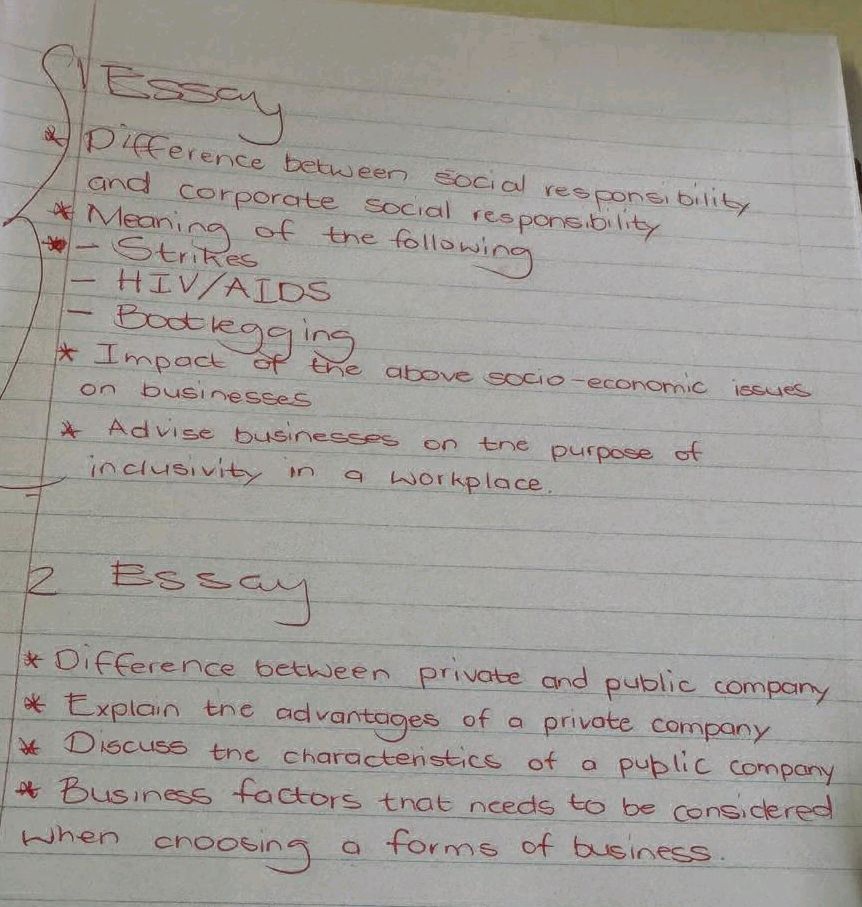 1 Essay
* Difference between social responsibility
and corporate social responsibility
* Meaning of the following
* - Strikes
- HIV/AIDS
- Bootlegging
* Impact of the above socio-economic issues
on businesses
* Advise businesses on the purpose of
inclusivity in a workplace.
2 Essay
* Difference between private and public company
* Explain the advantages of a private company
* Discuss the characteristics of a public company
* Business factors that needs to be considered
when choosing a forms of business.